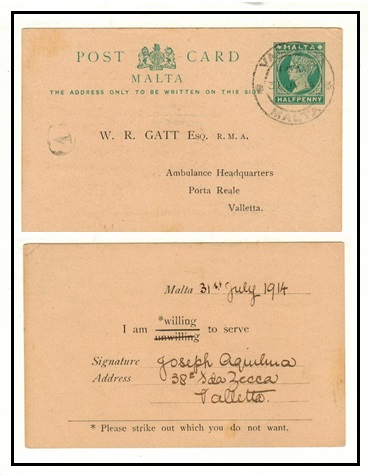 POST CARD
MALTA
THE ADDRESS ONLY TO BE WRITTEN ON THIS SIDE
MALTA
HALFPENNY
MALTA
A
W. R. GATT Esq. R. M. A.
Ambulance Headquarters
Porta Reale
Valletta.
Malta 31st July 1914
*willing
I am to serve
unwilling
Signature Joseph Aquilina
Address 38E Sda Zecca
Valletta
* Please strike out which you do not want.